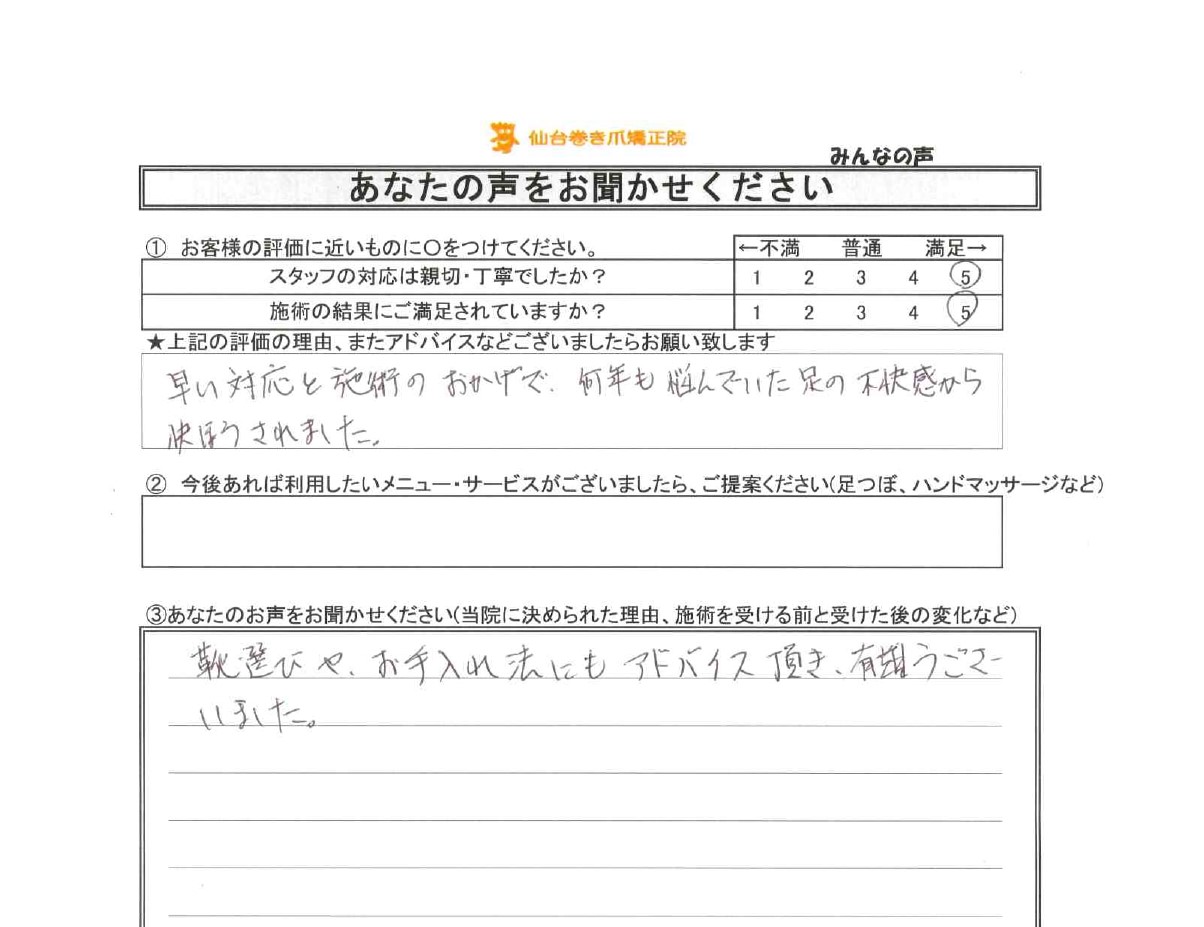 仙台巻き爪矯正院
みんなの声
あなたの声をお聞かせください
① お客様の評価に近いものに〇をつけてください。
←不満 普通 満足→
スタッフの対応は親切・丁寧でしたか? 1 2 3 4 5
施術の結果にご満足されていますか? 1 2 3 4 5
★上記の評価の理由、またアドバイスなどございましたらお願い致します
早い対応と施術のおかげで、何年も悩んでいた足の不快感から
快ほうされました。
② 今後あれば利用したいメニュー・サービスがございましたら、ご提案ください(足つぼ、ハンドマッサージなど)
③あなたのお声をお聞かせください(当院に決められた理由、施術を受ける前と受けた後の変化など)
靴選びや、お手入れ法にもアドバイス頂き、有難うござ
いました。